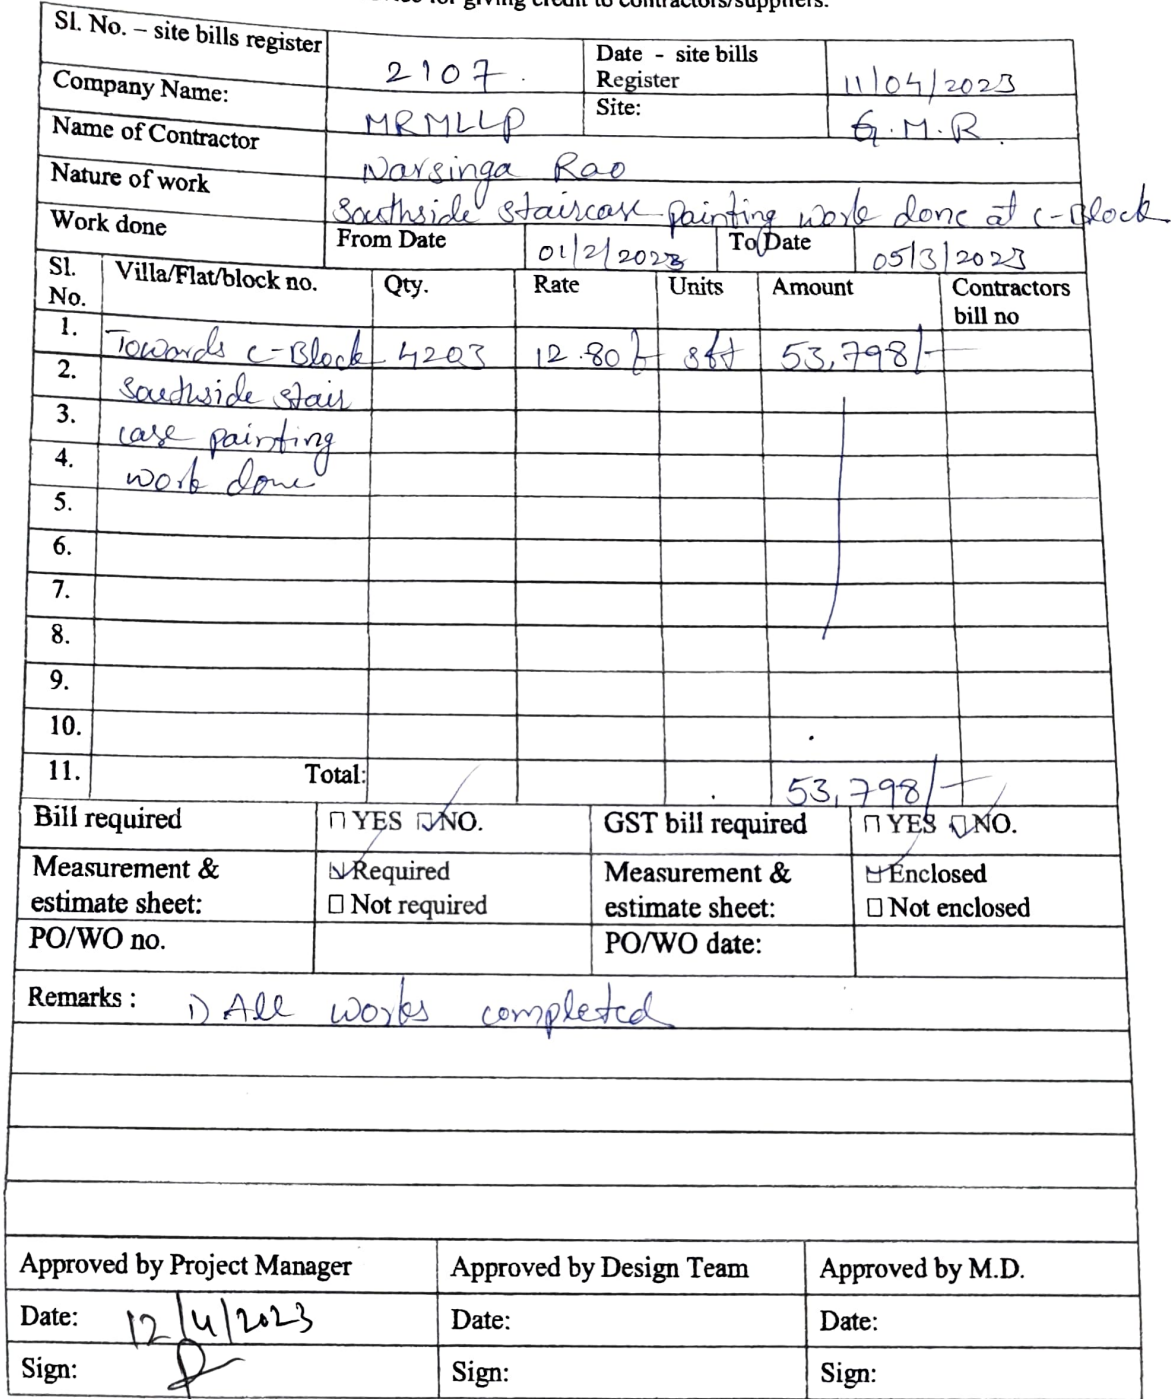 for giving credit to contractors/suppliers.
Sl. No. – site bills register 2107. Date - site bills Register 11/04/2023
Company Name: MRMLLP Site: G.M.R
Name of Contractor Narsinga Rao
Nature of work Southside staircase painting work done at c-Block
Work done From Date 01/2/2023 To Date 05/3/2023
Sl. No. Villa/Flat/block no. Qty. Rate Units Amount Contractors bill no
1. Towards c-Block 4203 12.80/- sft 53,798/-
2. Southside stair
3. case painting
4. work done
5.
6.
7.
8.
9.
10.
11. Total: 53,798/-
Bill required YES NO. GST bill required YES NO.
Measurement & estimate sheet: Required Not required Measurement & estimate sheet: Enclosed Not enclosed
PO/WO no. PO/WO date:
Remarks : 1) All works completed
Approved by Project Manager Approved by Design Team Approved by M.D.
Date: 12/4/2023 Date: Date:
Sign: Sign: Sign: